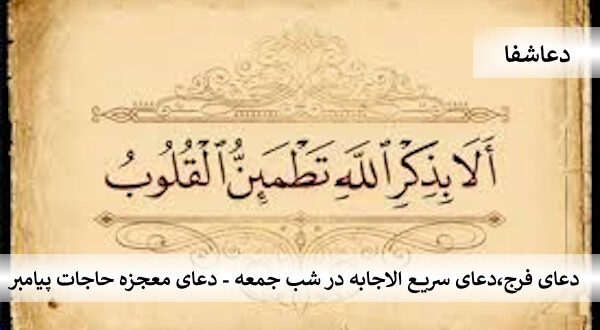 دعاشفا
أَلَا بِذِكْرِ ٱللَّهِ تَطْمَئِنُّ ٱلْقُلُوبُ
دعای فرج،دعای سریع الاجابه در شب جمعه - دعای معجزه حاجات پیامبر